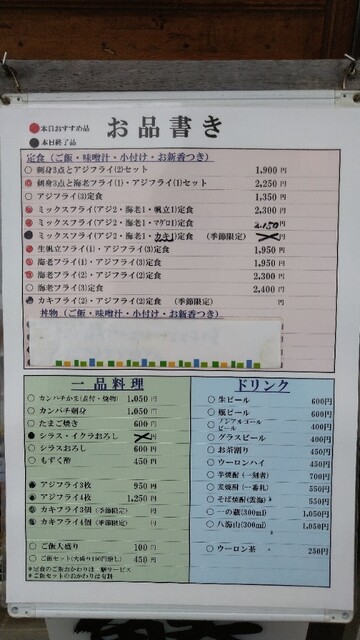 お品書き
本日おすすめ品
本日終了品
定食（ご飯・味噌汁・小付け・お新香つき）
○ 刺身3点とアジフライ(2)セット 1,900円
刺身3点と海老フライ(1)・アジフライ(1)セット 2,250円
○ アジフライ(3)定食 1,350円
ミックスフライ(アジ2・海老1・帆立1)定食 2,300円
ミックスフライ(アジ2・海老1・マグロ)定食 2,150円
ミックスフライ(アジ2・海老1・カキ1)定食 (季節限定) 円
生帆立フライ(1)・アジフライ(3)定食 1,950円
海老フライ(1)・アジフライ(3)定食 1,950円
海老フライ(2)・アジフライ(2)定食 2,300円
○ 海老フライ(3)定食 2,400円
カキフライ(2)・アジフライ(2)定食 (季節限定) 円
丼物（ご飯・味噌汁・小付け・お新香つき）
一品料理
○ カンパチかま(煮付・焼物) 1,050円
○ カンパチ刺身 1,050円
○ たまご焼き 600円
シラス・イクラおろし 円
○ シラスおろし 600円
○ もずく酢 450円
アジフライ3枚 950円
アジフライ4枚 1,250円
カキフライ3個 (季節限定) 円
カキフライ4個 (季節限定) 円
○ ご飯大盛り 100円
○ ご飯セット(大盛り100円増し) 450円
*定食のご飯おかわりは一膳サービス
*ご飯セットのおかわりは有料
ドリンク
○ 生ビール 600円
○ 瓶ビール 600円
○ ノンアルコールビール 400円
○ グラスビール 400円
○ お茶割り 450円
○ ウーロンハイ 450円
○ 芋焼酎(一刻者) 700円
○ 麦焼酎(一番札) 550円
○ そば焼酎(雲海) 550円
○ 一の蔵(300ml) 1,050円
○ 八海山(300ml) 1,050円
○ ウーロン茶 250円